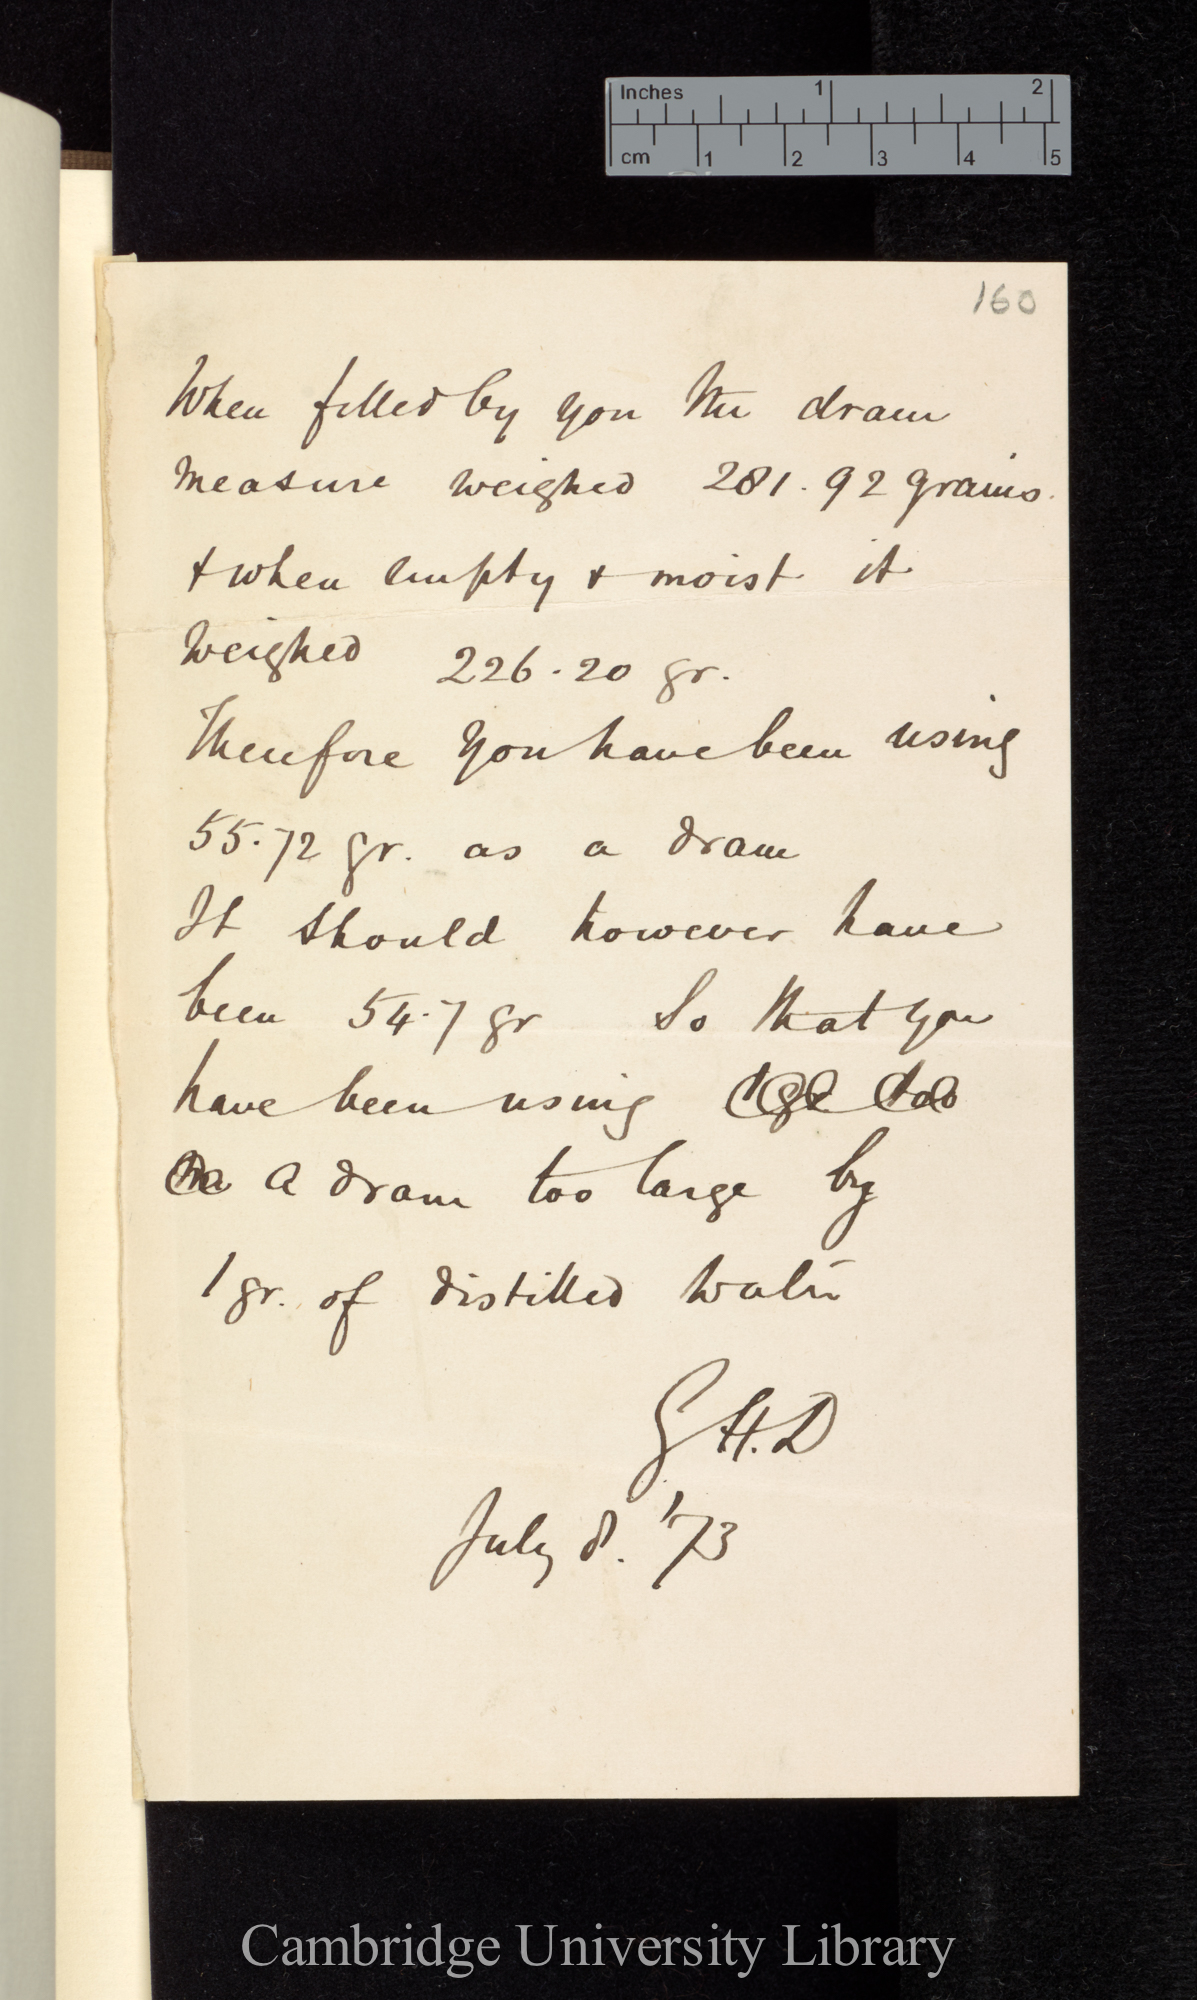 Inches 1 2
cm 1 2 3 4 5
160
When filled by you the dram
measure weighed 281.92 grains.
& when empty & moist it
weighed 226.20 gr.
Therefore you have been using
55.72 gr. as a dram
It should however have
been 54.7 gr So that you
have been using
a dram too large by
1 gr. of distilled water
G H. D
July 8. '73
Cambridge University Library